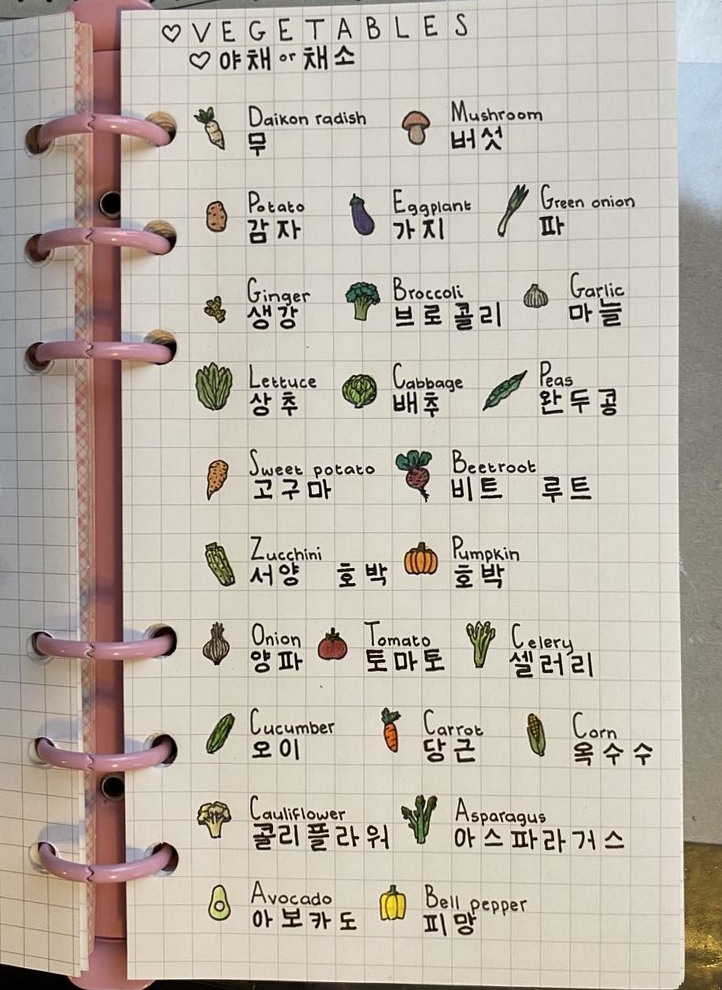 ♡ VEGETABLES
♡ 야채 or 채소
Daikon radish Mushroom
무 버섯
Potato Eggplant Green onion
감자 가지 파
Ginger Broccoli Garlic
생강 브로콜리 마늘
Lettuce Cabbage Peas
상추 배추 완두콩
Sweet potato Beetroot
고구마 비트 루트
Zucchini Pumpkin
서양 호박 호박
Onion Tomato Celery
양파 토마토 셀러리
Cucumber Carrot Corn
오이 당근 옥수수
Cauliflower Asparagus
콜리플라워 아스파라거스
Avocado Bell pepper
아보카도 피망